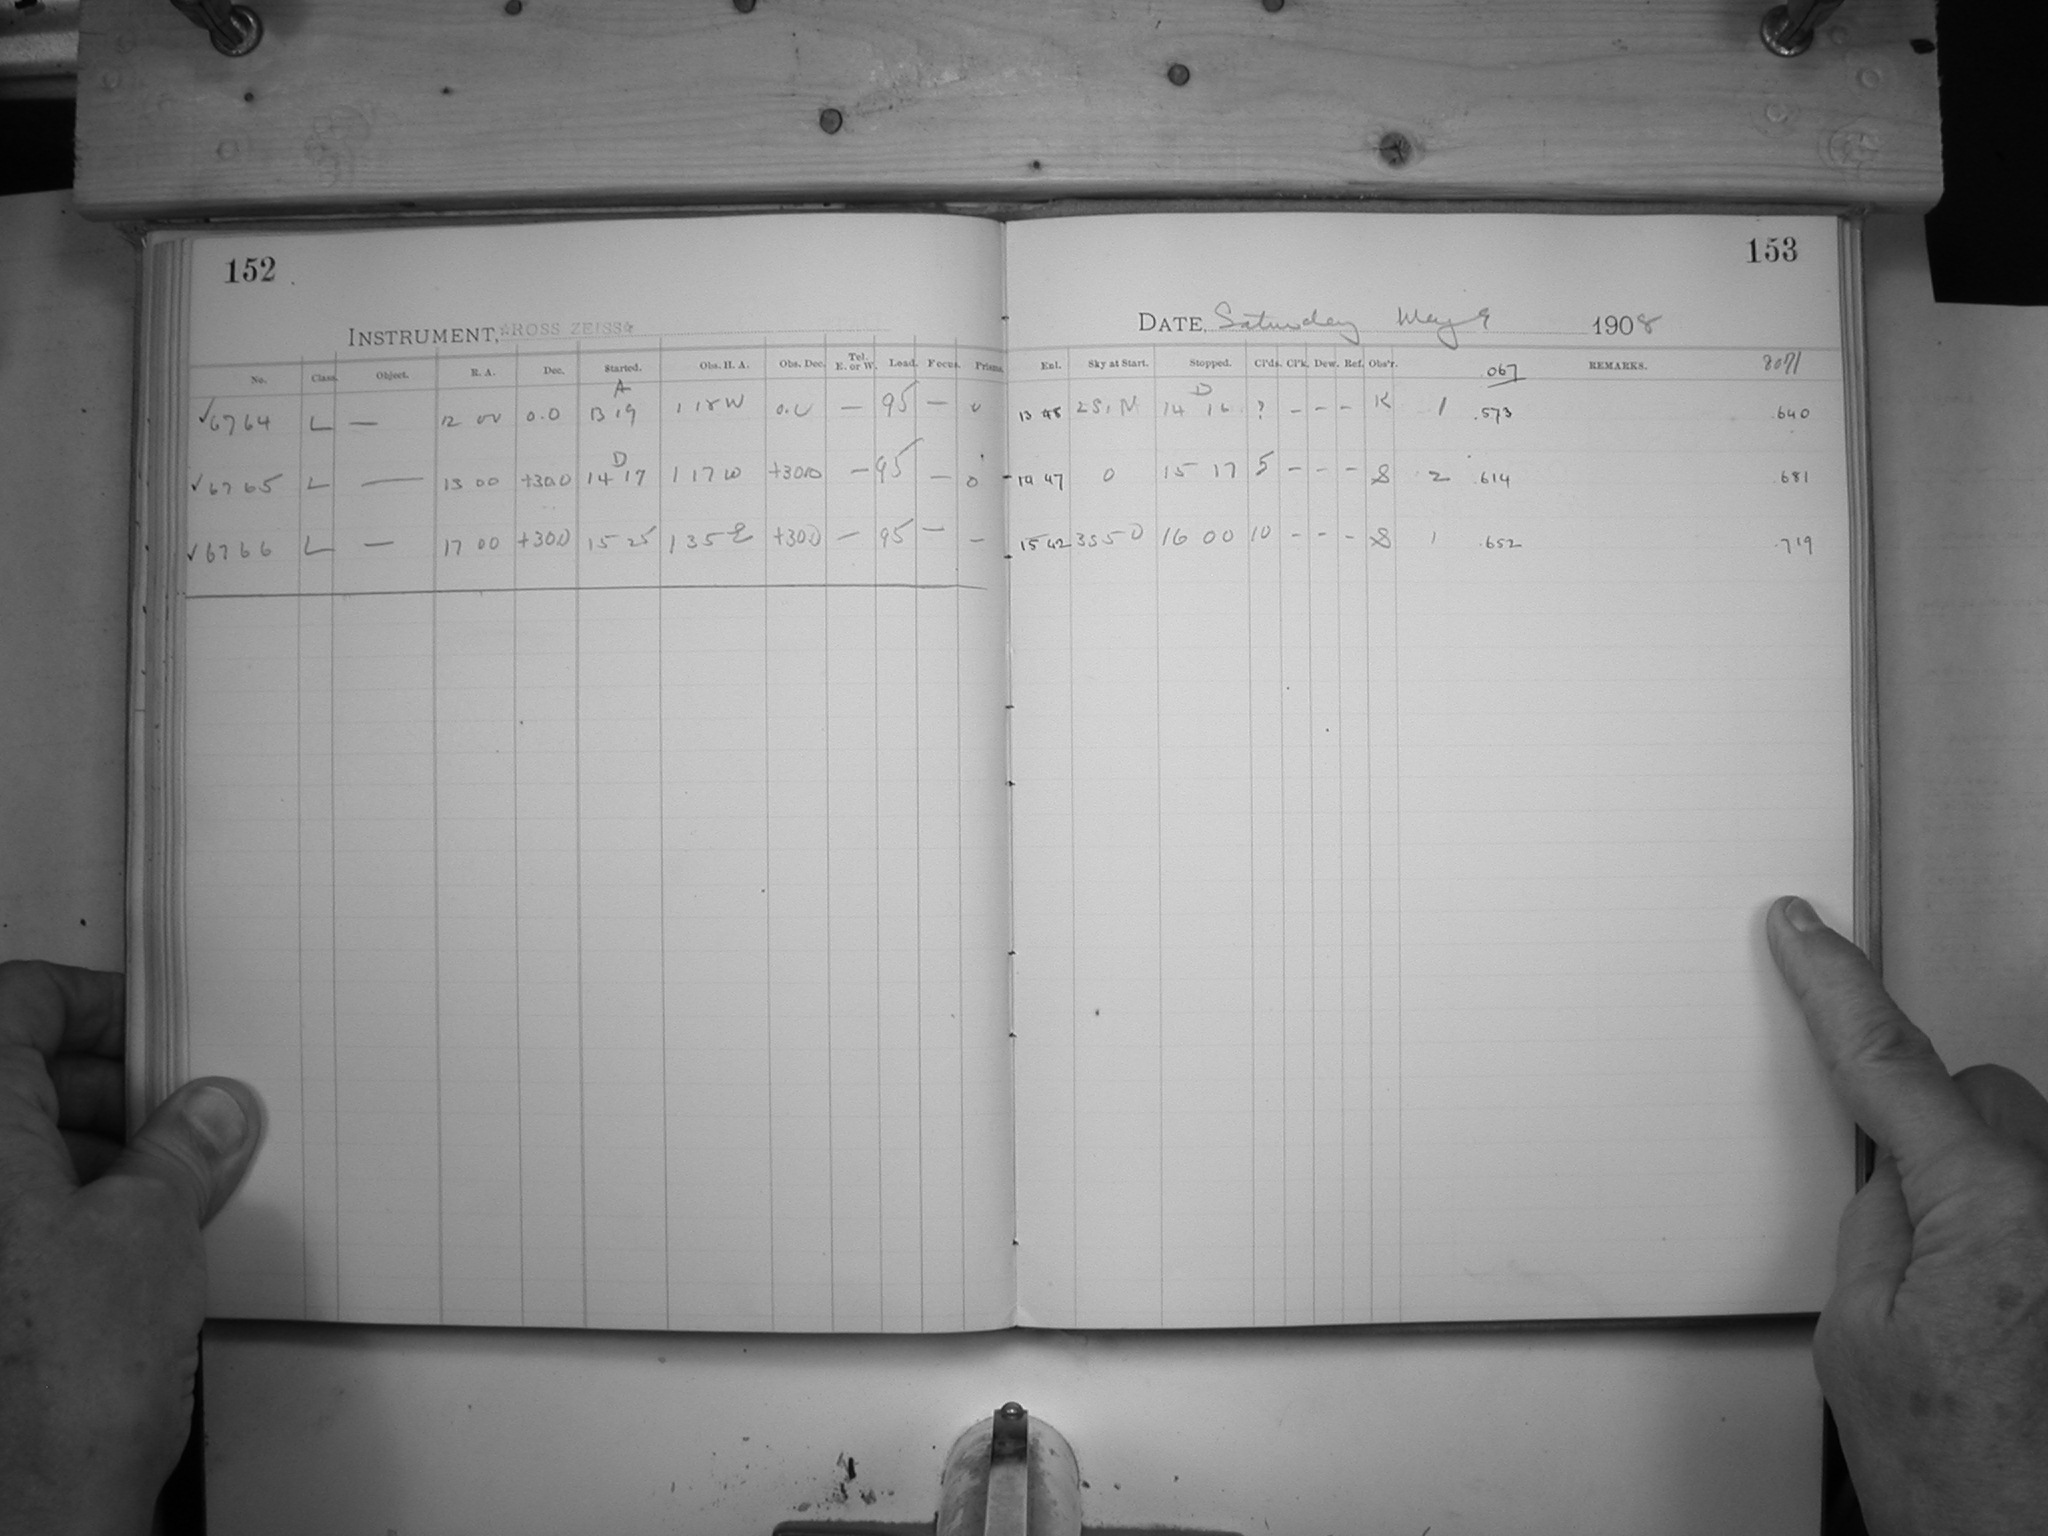 152
INSTRUMENT, ☆ROSS ZEISS☆
No. Class. Object. R. A. Dec. Started. Obs. H. A. Obs. Dec. Tel. E. or W. Load. Focus. Prisms.
A
✓6764 L — 12 00 0.0 13 19 1 18 W 0.0 — 95 — 0
D
✓6765 L — 13 00 +30.0 14 17 1 17 W +30.0 — 95 — 0
✓6766 L — 17 00 +30.0 15 25 1 35 E +30.0 — 95 — —
153
DATE, Saturday May 9 1908
Enl. Sky at Start. Stopped. Cl'ds. Cl'k. Dew. Ref. Obs'r. .067 REMARKS. 8071
D
13 48 2S, N 14 16 ? – – – K 1 .573 .640
14 47 0 15 17 5 – – – S 2 .614 .681
15 42 3S50 16 00 10 – – – S 1 .652 .719